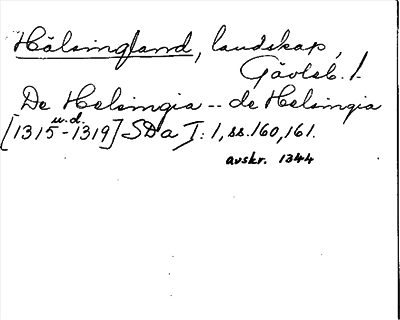 Hälsingland, landskap,
Gävleb. l.
De Helsingia -- de Helsingia
u.d.
[1315-1319] SDa I: 1, ss. 160, 161.
avskr. 1344